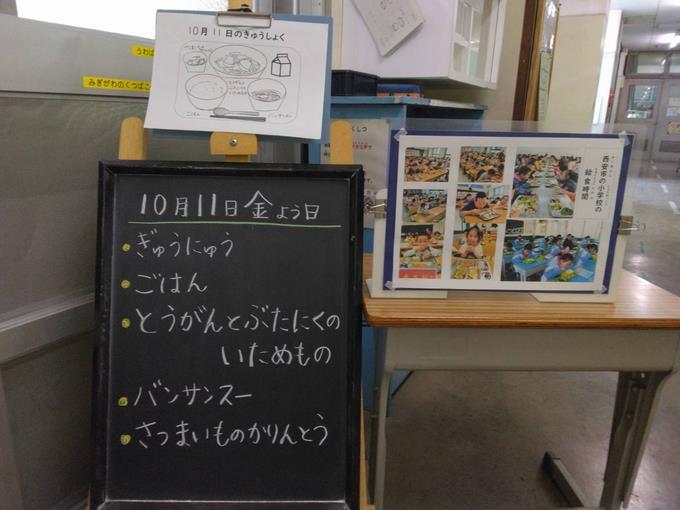 うわば
みぎがわのくつばこ
10月11日のきゅうしょく
ごはん
バンサンスー
10月11日金よう日
ぎゅうにゅう
ごはん
とうがんとぶたにくの
いためもの
バンサンスー
さつまいものかりんとう
西安市の小学校の
給食時間